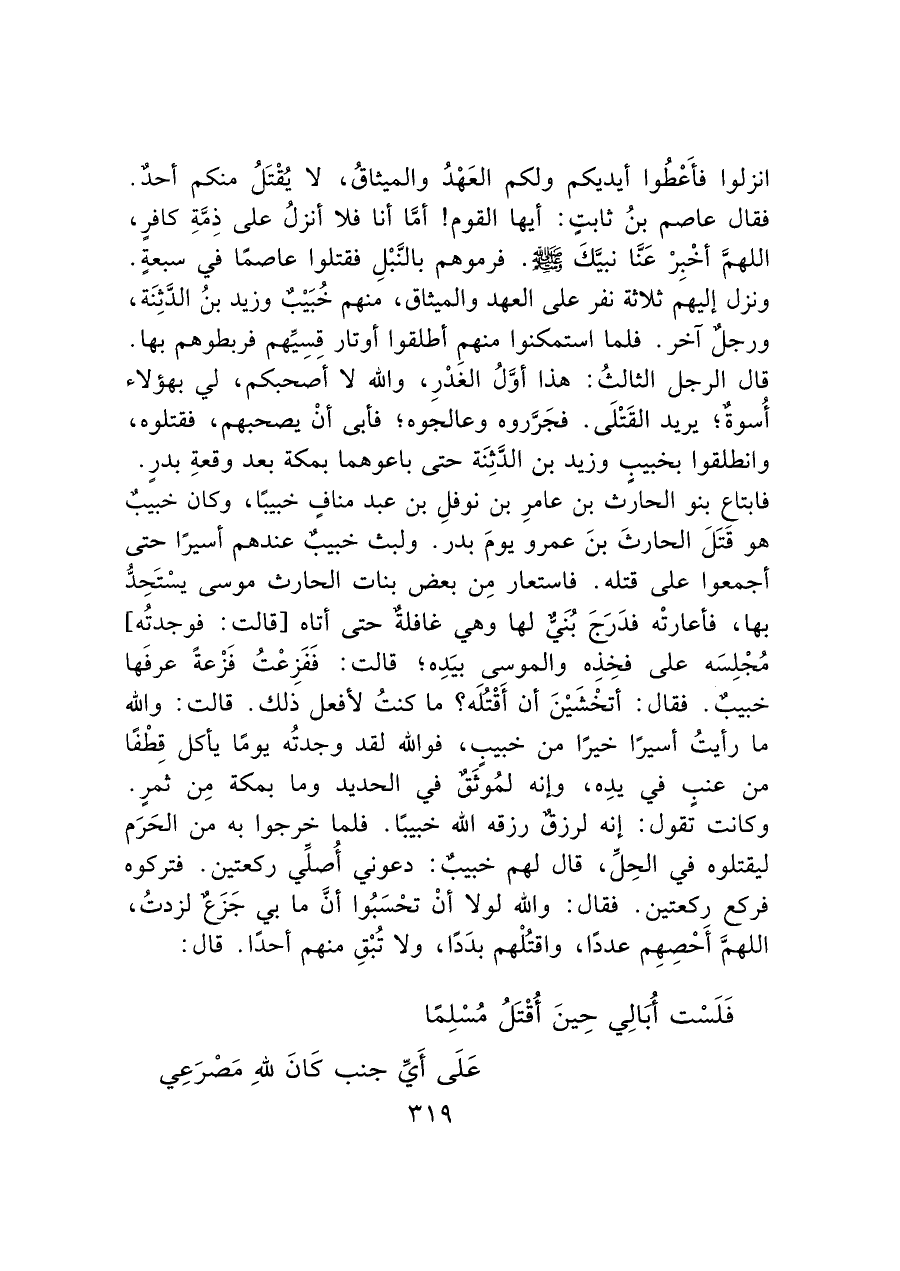 انزلوا فأَعْطُوا أيديكم ولكم العَهْدُ والميثاقُ، لا يُقْتَلُ منكم أحدٌ.
فقال عاصم بنُ ثابتٍ: أيها القوم! أمَّا أنا فلا أنزلُ على ذِمَّةِ كافرٍ،
اللهمَّ أخْبِرْ عَنَّا نبيَّكَ ﷺ. فرموهم بالنَّبْلِ فقتلوا عاصمًا في سبعةٍ.
ونزل إليهم ثلاثة نفر على العهد والميثاق، منهم خُبَيْبٌ وزيد بنُ الدَّثِنَة،
ورجلٌ آخر. فلما استمكنوا منهم أطلقوا أوتار قِسِيِّهم فربطوهم بها.
قال الرجل الثالثُ: هذا أوَّلُ الغَدْرِ، والله لا أصحبكم، لي بهؤلاء
أُسوةٌ؛ يريد القَتْلَى. فجَرَّروه وعالجوه؛ فأبى أنْ يصحبهم، فقتلوه،
وانطلقوا بخبيبٍ وزيد بن الدَّثِنَة حتى باعوهما بمكة بعد وقعةِ بدرٍ.
فابتاع بنو الحارث بن عامرِ بن نوفلِ بن عبد منافٍ خبيبًا، وكان خبيبٌ
هو قَتَلَ الحارثَ بنَ عمرو يومَ بدر. ولبث خبيبٌ عندهم أسيرًا حتى
أجمعوا على قتله. فاستعار مِن بعض بنات الحارث موسى يسْتَحِدُّ
بها، فأعارتْه فدَرَجَ بُنَيٌّ لها وهي غافلةٌ حتى أتاه [قالت: فوجدتُه]
مُجْلِسَه على فخِذِه والموسى بيَدِه؛ قالت: فَفَزِعْتُ فَزْعةً عرفَها
خبيبٌ. فقال: أتخْشَيْنَ أن أَقْتُلَه؟ ما كنتُ لأفعل ذلك. قالت: والله
ما رأيتُ أسيرًا خيرًا من خبيبٍ، فوالله لقد وجدتُه يومًا يأكل قِطْفًا
من عنبٍ في يدِه، وإنه لمُوثَقٌ في الحديد وما بمكة مِن ثمرٍ.
وكانت تقول: إنه لرزقٌ رزقه الله خبيبًا. فلما خرجوا به من الحَرَم
ليقتلوه في الحِلِّ، قال لهم خبيبٌ: دعوني أُصلِّي ركعتين. فتركوه
فركع ركعتين. فقال: والله لولا أنْ تحْسَبُوا أنَّ ما بي جَزَعٌ لزدتُ،
اللهمَّ أَحْصِهِم عددًا، واقتُلْهم بدَدًا، ولا تُبْقِ منهم أحدًا. قال:
فَلَسْت أُبَالِي حِينَ أُقْتَلُ مُسْلِمًا
عَلَى أَيِّ جنب كَانَ للهِ مَصْرَعِي
٣١٩